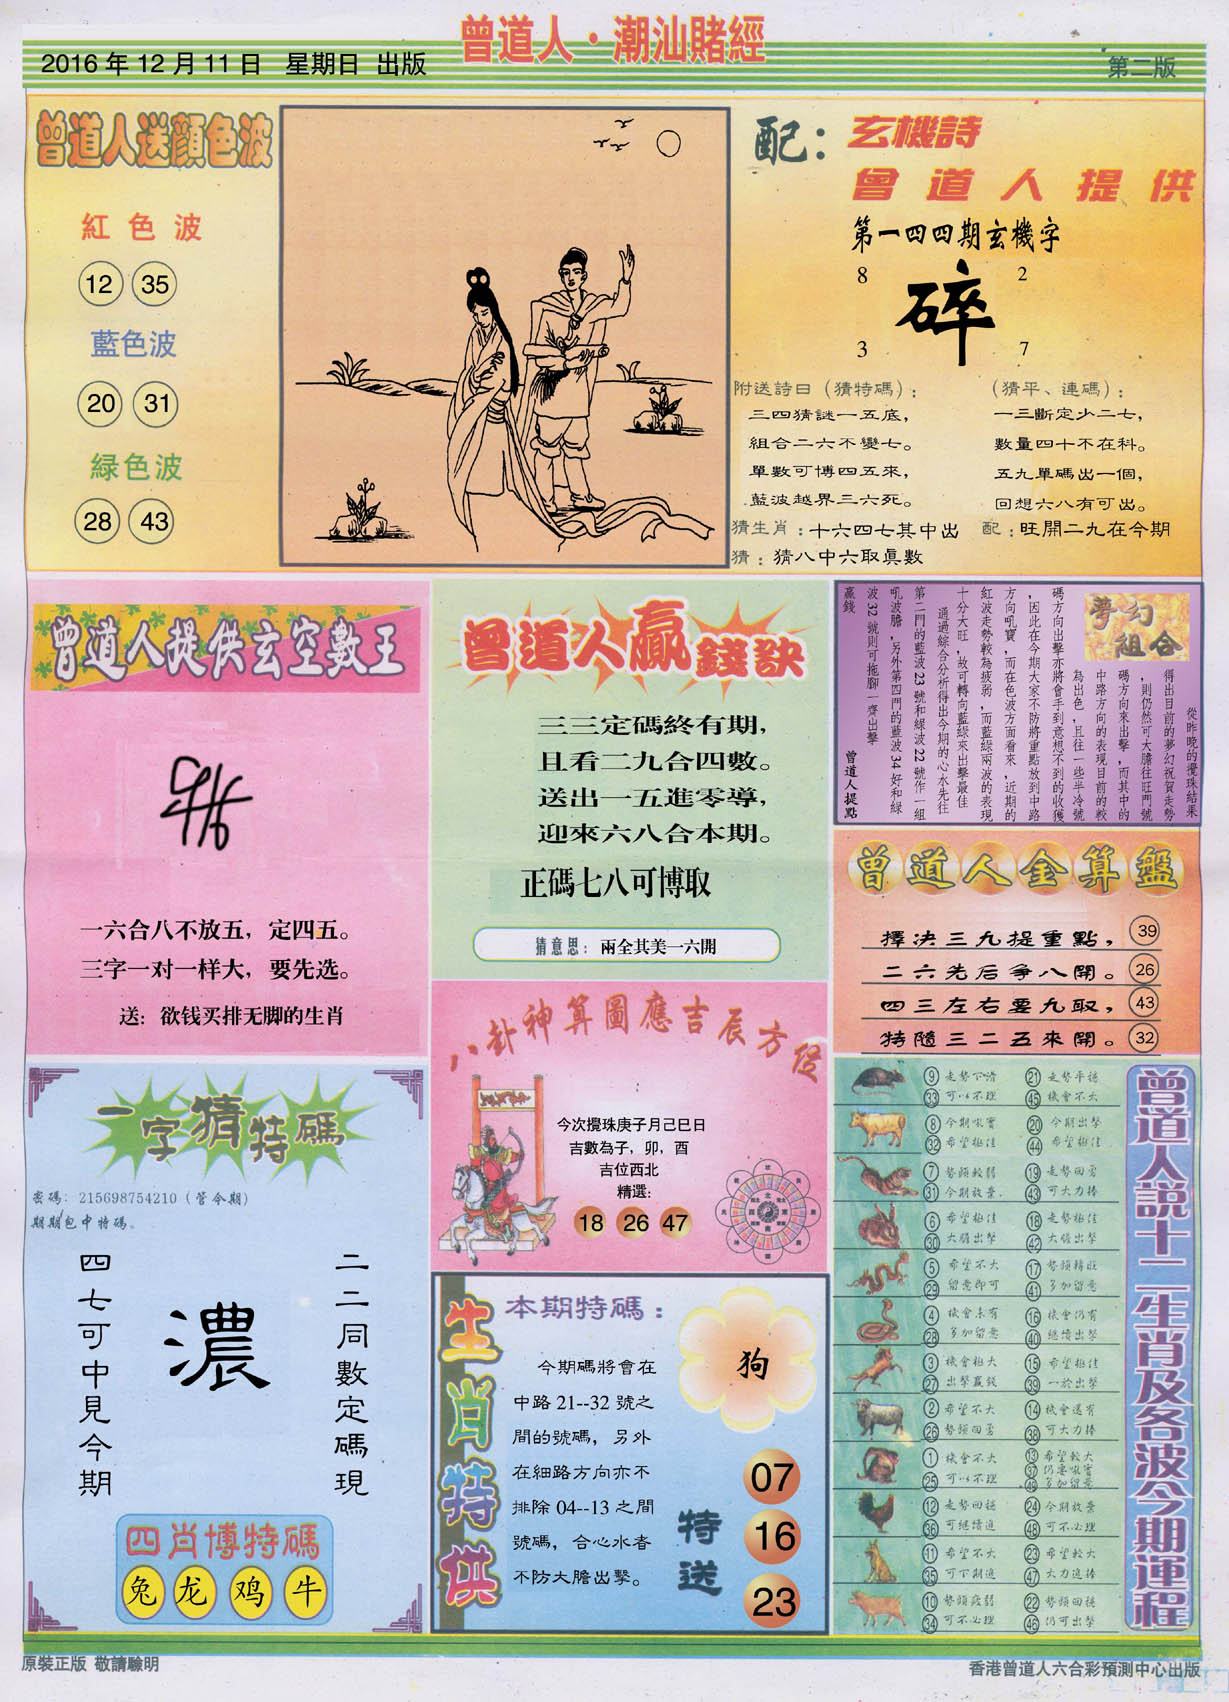 曾道人·潮汕賭經
2016年12月11日 星期日 出版
第二版
曾道人送顏色波
紅色波
12 35
藍色波
20 31
綠色波
28 43
配：玄機詩
曾道人提供
第一四四期玄機字
8 2
碎
3 7
附送詩曰（猜特碼）：
三四猜謎一五底，
組合二六不變七。
單數可博四五來，
藍波越界三六死。
（猜平、連碼）：
一三斷定少二七，
數量四十不在科。
五九單碼出一個，
回想六八有可出。
猜生肖：十六四七其中出
配：旺開二九在今期
猜：猜八中六取真數
曾道人提供玄空數王
一六合八不放五，定四五。
三字一对一样大，要先选。
送：欲钱买排无脚的生肖
曾道人贏錢訣
三三定碼終有期，
且看二九合四數。
送出一五進零導，
迎來六八合本期。
正碼七八可博取
猜意思：兩全其美一六開
夢幻組合
從昨晚的攪珠結果
得出目前的夢幻祝賀走勢
，則仍然可大膽往旺門號
碼方向來出擊，而其中的
中路方向的表現目前的較
為出色，且往一些半冷號
碼方向出擊亦將會手到意想不到的收獲
，因此在今期大家不防將重點放到中路
方向吼寶，而在色波方面看來，近期的
紅波走勢較為疲弱，而藍綠兩波的表現
十分大旺，故可轉向藍綠來出擊最佳
通過綜合分析得出今期的心水先往
第二門的藍波23號和綠波22號作一組
吼波膽，另外第四門的藍波34好和綠
波32號則可拖腳一齊出擊
贏錢
曾道人提點
曾道人金算盤
擇決三九提重點， 39
二六先后爭八開。 26
四三左右要九取， 43
特隨三二五來開。 32
八卦神算圖應吉辰方位
今次攪珠庚子月己巳日
吉數為子，卯，酉
吉位西北
精選：
18 26 47
一字猜特碼
密碼：215698754210（管今期）
期期包中特碼。
二二同數定碼現
濃
四七可中見今期
四肖博特碼
兔 龙 鸡 牛
生肖特供
本期特碼：
今期碼將會在
中路21--32號之
間的號碼，另外
在細路方向亦不
排除04--13之間
號碼，合心水者
不防大膽出擊。
狗
特送
07
16
23
曾道人說十二生肖及各波今期運程
9 走勢下滑 21 走勢平穩
33 可以不理 45 機會不大
8 今期吼寶 20 今期出擊
32 希望極佳 44 希望極佳
7 勢頭較弱 19 走勢回勇
31 今期放棄 43 可大力捧
6 希望極佳 18 走勢極佳
30 大膽出擊 42 大膽出擊
5 希望不大 17 勢頭轉旺
29 留意即可 41 多加留意
4 機會未有 16 機會仍有
28 多加留意 40 繼續出擊
3 機會極大 15 希望極佳
27 出擊贏錢 39 一於出擊
2 希望不大 14 機會還有
26 勢頭回勇 38 可大力捧
1 機會不大 13 希望較大
25 可以不理 37 仍要吼實
49 多加留意
12 走勢回穩 24 今期放棄
36 可繼續追 48 可不必理
11 希望不大 23 希望較大
35 可下期追 47 大力追捧
10 勢頭疲弱 22 勢頭回穩
34 可不必理 46 仍可出擊
原裝正版 敬請驗明
香港曾道人六合彩預測中心出版